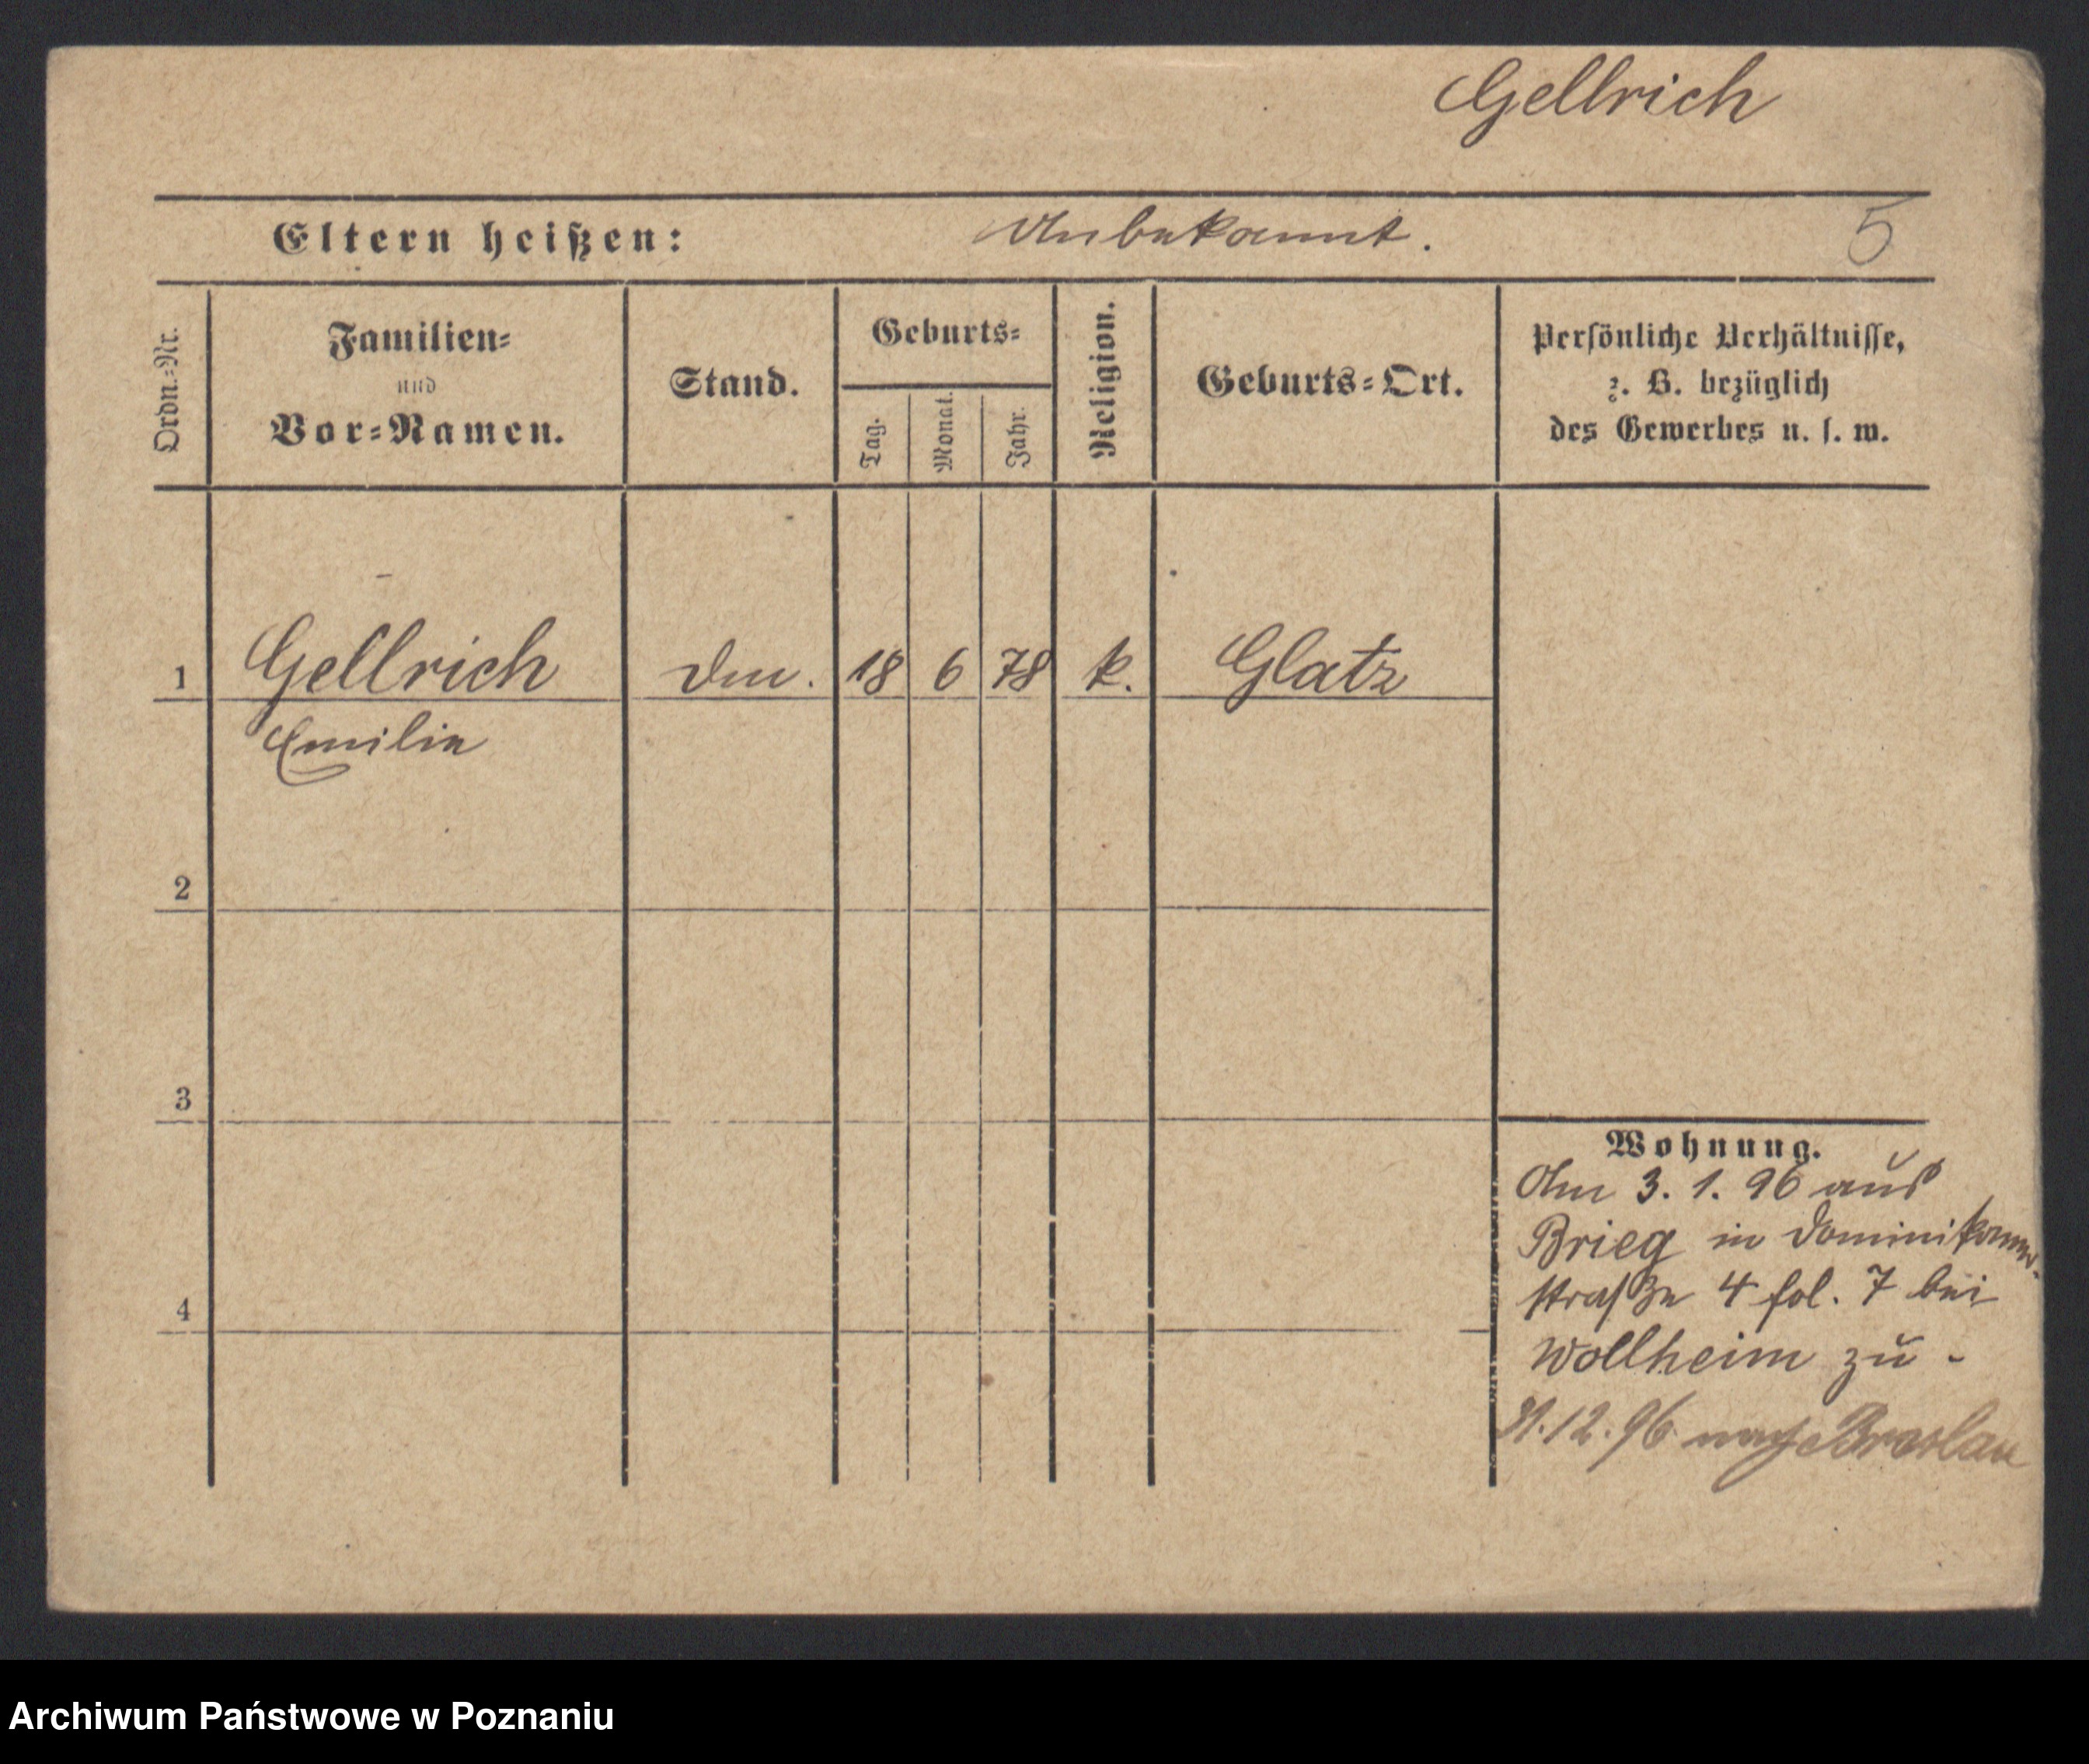 Gellrich
Eltern heißen: Unbekannt. 5
Ordn.-Nr.
Familien-
und
Vor-Namen.
Stand.
Geburts-
Tag.
Monat.
Jahr.
Religion.
Geburts-Ort.
Persönliche Verhältnisse,
z. B. bezüglich
des Gewerbes u. s. w.
1 Gellrich 18 6 78 k. Glatz
Emilie
2
3
4
Wohnung.
Am 3. 1. 96 aus
Brieg in Dominikaner-
straße 4 fol. 7 bei
Wollheim zu -
31.12.96 nach Breslau
Archiwum Państwowe w Poznaniu